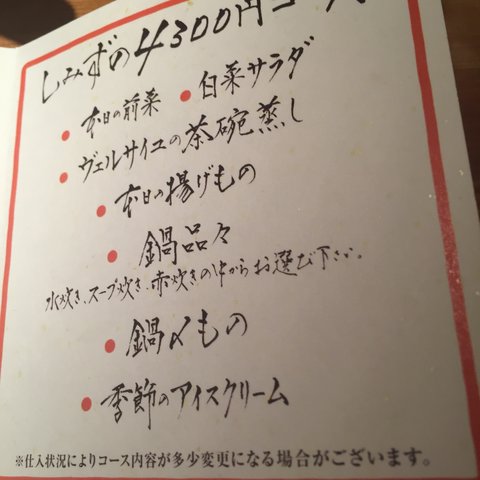 しみずの4300円コース
●本日の前菜 ●白菜サラダ
●ヴェルサイユの茶碗蒸し
●本日の揚げもの
●鍋品々
水炊き、スープ炊き、赤炊きの中からお選び下さい。
●鍋〆もの
●季節のアイスクリーム
※仕入状況によりコース内容が多少変更になる場合がございます。